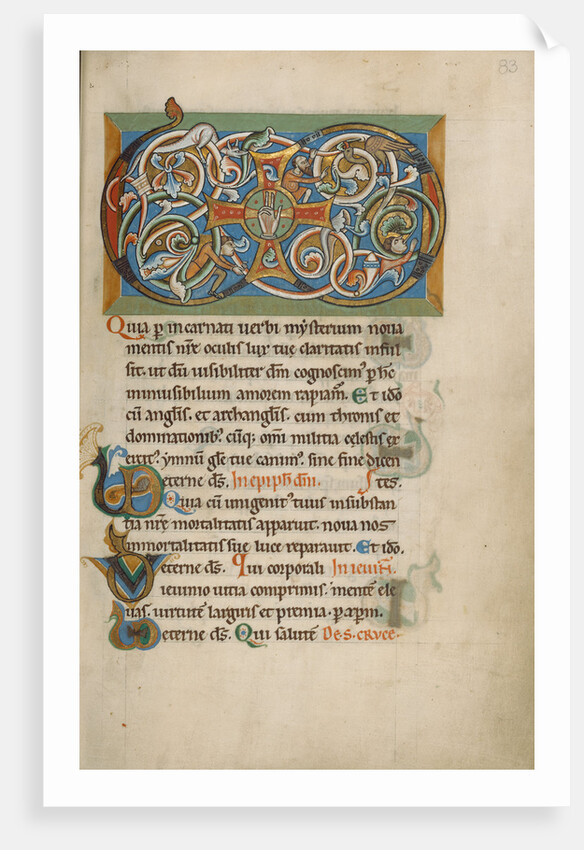 83
Quia p̱ incarnati uerbi mẏsterium noua
mentis nr̄e oculis lux tue claritatis inful
sit. ut dū uisibiliter dm̄ cognoscim᷒ p̱ hc̄
inuisibilium amorem rapiam᷒. Et ido
cū angl̄is. et archangl̄is. cum thronis et
dominationib᷒ cūq; om̄i militia cęlestis ex
ercit᷒ ẏmnum gl̄e tue canim᷒. sine fine dicen
eterne ds̄. In epiph̄ dn̄i. tes.
Quia cū unigenit᷒ tuus in substan
tia nr̄e mortalitatis apparuit. noua nos
immortalitatis sue luce reparauit. Et ido.
eterne ds̄. Qui corporali In ieiun̄.
ieiunio uitia comprimis. mente ele
uas. uirtutē largiris et premia. p̱
eterne ds̄. Qui salutē De. S. CRUCE.